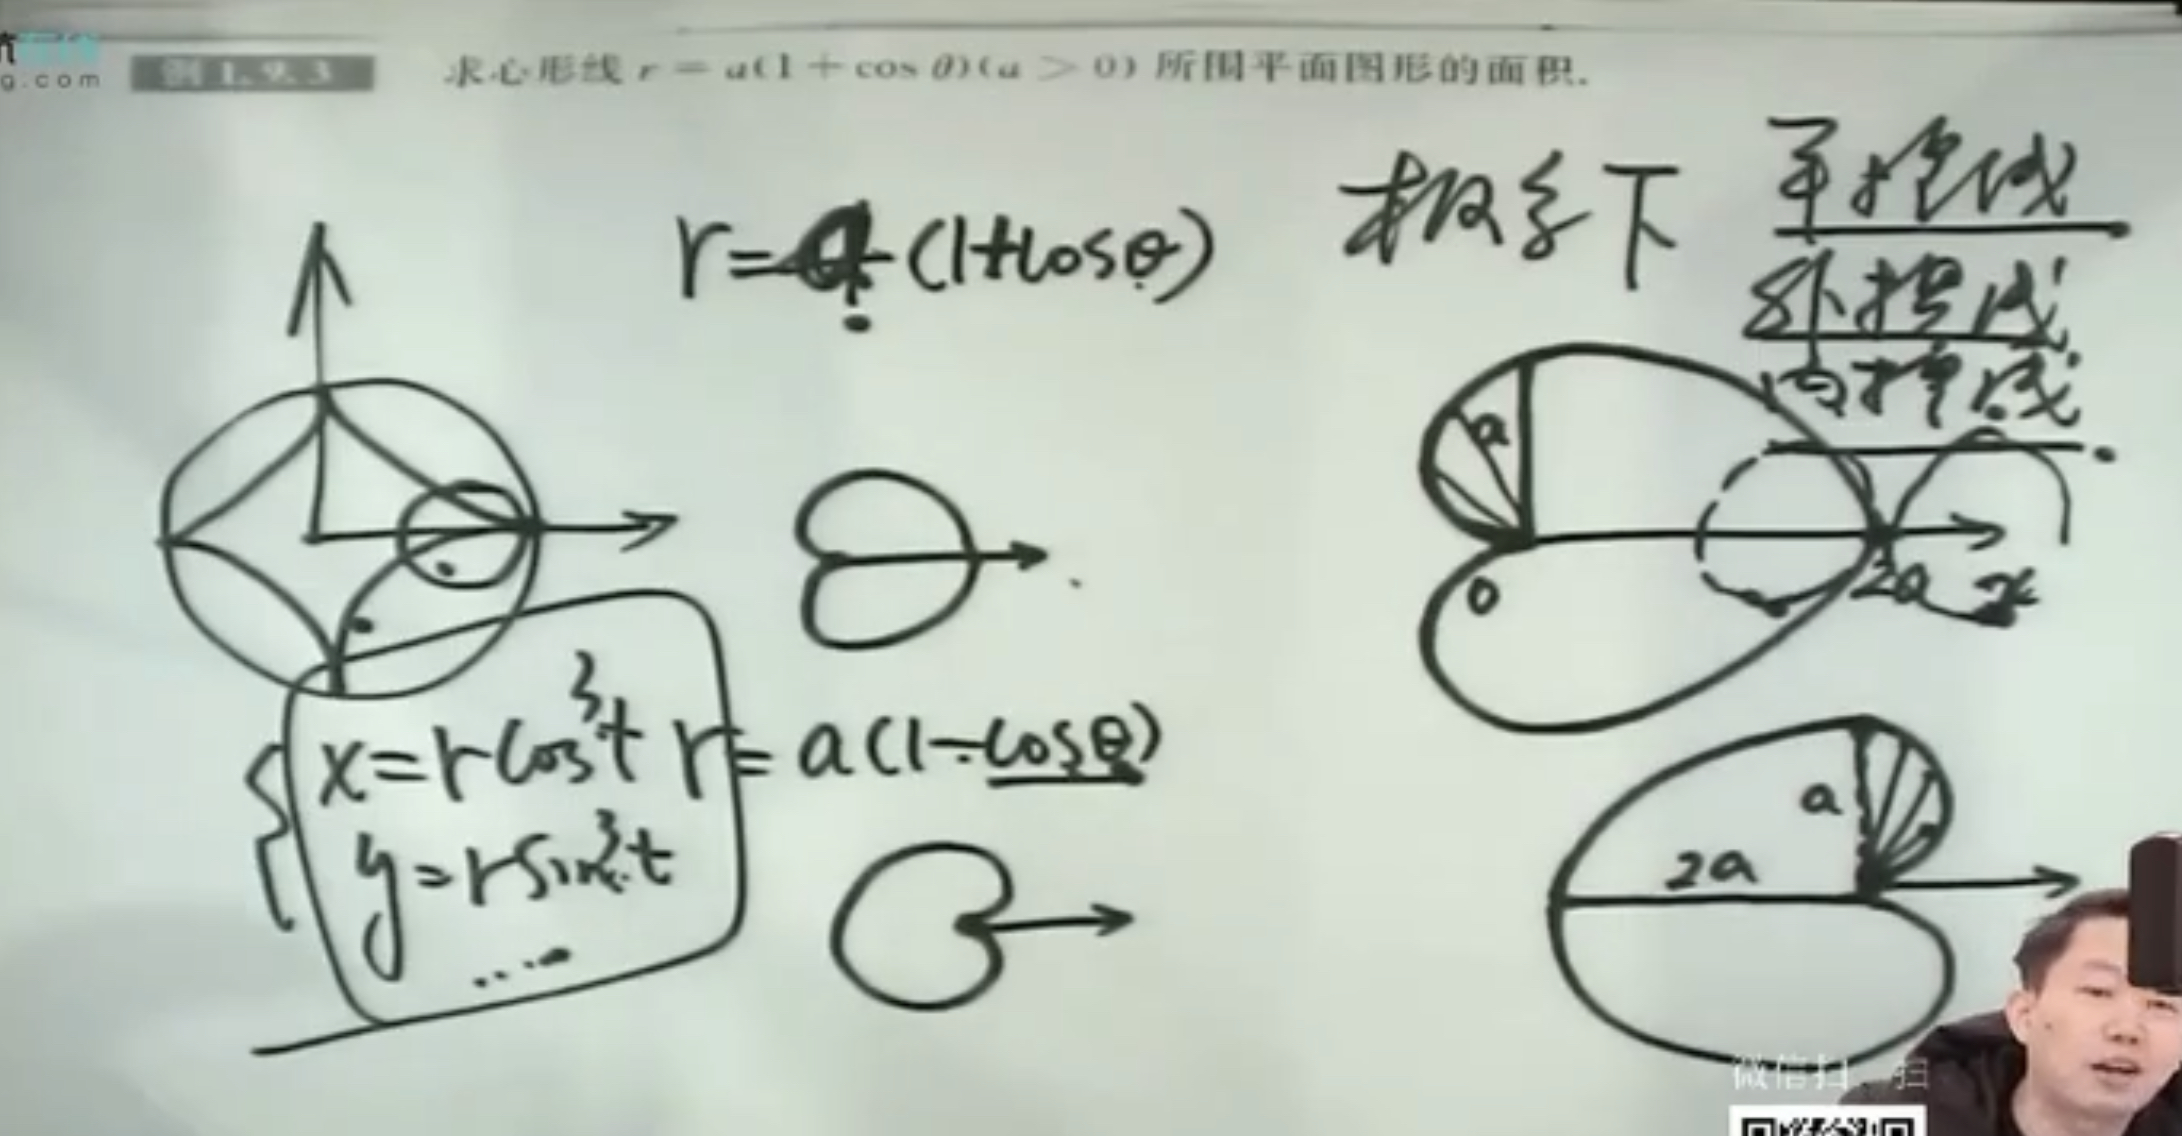 g.com
例 1.9.3 求心形线 r = a(1 + cos θ)(a > 0) 所围平面图形的面积.
r = a (1+cosθ)
极系下 平摆线
外摆线
内摆线
a
0
2a
x
x = r cos³t
y = r sin³t
....
r = a(1-cosθ)
a
2a
微信扫一扫